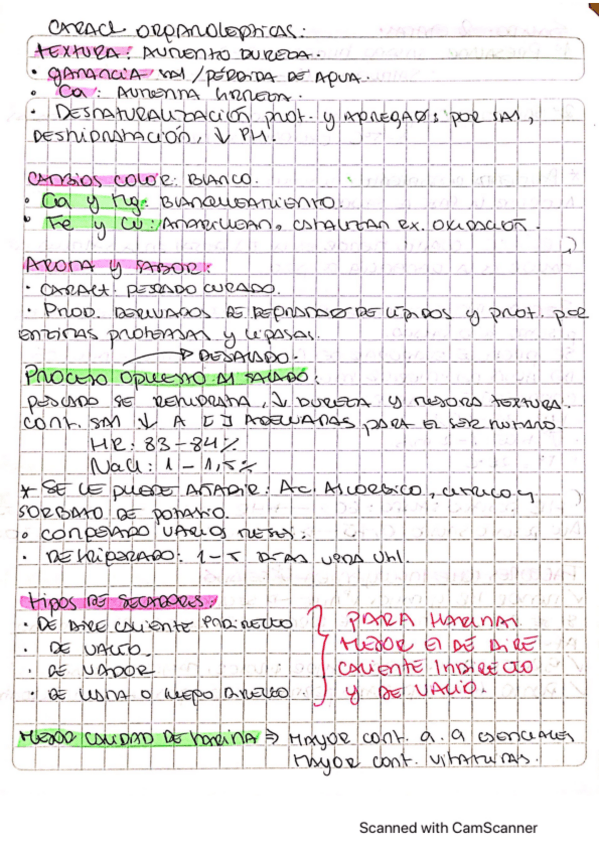 CARACT ORGANOLEPTICAS:
TEXTURA: AUMENTO DUREZA.
• GANANCIA SAL / PÉRDIDA DE AGUA.
• Ca: AUMENTA FIRMEZA.
• DESNATURALIZACIÓN prot. y AGREGAC: POR SAL,
DESHIDRATACIÓN, ↓ PH.
CAMBIOS COLOR: BLANCO.
• Ca y Mg: BLANQUEAMIENTO.
• Fe y Cu: AMARILLEAN, CATALIZAN RX. OXIDACIÓN.
AROMA Y SABOR:
• CARACT. PESCADO CURADO.
• PROD. DERIVADOS DE DEGRADAC DE LÍPIDOS y prot. por
ENZIMAS PROTEASAS y LIPASAS.
→ DESALADO.
PROCESO OPUESTO AL SALADO:
PESCADO SE REHIDRATA, ↓ DUREZA Y MEJORA TEXTURA.
CONT. SAL ↓ A [ ] ADECUADAS PARA EL SER HUMANO.
HR: 83-84%
NaCl: 1 - 1,5%
* SE LE PUEDE AÑADIR: AC. ASCORBICO, CITRICO y
SORBATO DE POTASIO.
• CONGELADO VARIOS MESES.
• REFRIGERADO: 1-5 DÍAS VIDA ÚTIL.
TIPOS DE SECADORES:
• DE AIRE CALIENTE INDIRECTO
• DE VACIO.
• DE VAPOR
• DE LLAMA O FUEGO DIRECTO.
PARA HARINA:
MEJOR EL DE AIRE
CALIENTE INDIRECTO
Y DE VACIO.
MEJOR CALIDAD DE HARINA ⇒ MAYOR CONT. a.a ESENCIALES
MAYOR CONT. VITAMINAS.
Scanned with CamScanner